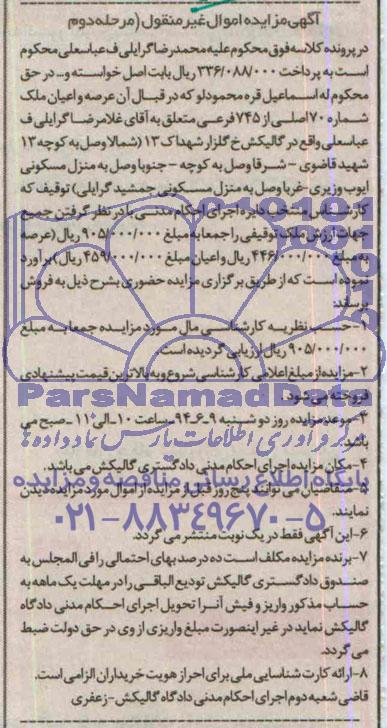 آگهی مزایده اموال غیر منقول (مرحله دوم
در پرونده کلاسه فوق محکوم علیه محمدرضا گرایلی ف عباسعلی محکوم
است به پرداخت ۳۳۶/۰۸۸/۰۰۰ ریال بابت اصل خواسته و.. در حق
محکوم له اسماعیل قره محمودلو که در قبال آن عرصه و اعیان ملک
شماره ۷۰ اصلی از ۷۴۵ فرعی متعلق به آقای غلامرضا گرایلی ف
عباسعلی واقع در گالیکش خ گلزار شهداک ۱۳ (شمالا وصل به کوچه ۱۳
شهید قاضوی - شرقا وصل به کوچه - جنوبا وصل به منزل مسکونی
ایوب وزیری - غربا وصل به منزل مسکونی جمشید گرایلی) توقیف که
کارشناس منتخب دایره اجرای احکام مدنی با در نظر گرفتن جمیع
جهات ارزش ملک توقیفی را جمعا به مبلغ ۹۰۵/۰۰۰/۰۰۰ ریال (عرصه
به مبلغ ۴۴۶/۰۰۰/۰۰۰ ریال و اعیان مبلغ ۴۵۹/۰۰۰/۰۰۰ ریال) برآورد
نموده است که از طریق برگزاری مزایده حضوری بشرح ذیل به فروش
برساند:
۱- حسب نظریه کارشناسی مال مورد مزایده جمعا به مبلغ
۹۰۵/۰۰۰/۰۰۰ ریال ارزیابی گردیده است.
۲- مزایده از مبلغ اعلامی کارشناسی شروع و به بالاترین قیمت پیشنهادی
فروخته می شود.
۳- موعد مزایده روز دوشنبه ۹-۶-۹۴ ساعت ۱۰ الی ۱۱ صبح می
باشد.
۴- مکان مزایده اجرای احکام مدنی دادگستری گالیکش می باشد.
۵- متقاضیان می توانند پنج روز قبل از مزایده از اموال مورد مزایده دیدن
نمایند.
۶- این آگهی فقط در یک نوبت منتشر می گردد.
۷- برنده مزایده مکلف است ده درصد بهای احتمالی را فی المجلس به
صندوق دادگستری گالیکش تودیع الباقی را در مهلت یک ماهه به
حساب مذکور واریز و فیش آنرا تحویل اجرای احکام مدنی دادگاه
گالیکش نماید در غیر اینصورت مبلغ واریزی از وی در حق دولت ضبط
می گردد.
۸- ارائه کارت شناسایی ملی برای احراز هویت خریداران الزامی است.
قاضی شعبه دوم اجرای احکام مدنی دادگاه گالیکش - زعفری
ParsNamadData
فرآوری اطلاعات پارس نماد داده ها
پایگاه اطلاع رسانی مناقصه و مزایده
۰۲۱-۸۸۳۴۹۶۷۰-۵